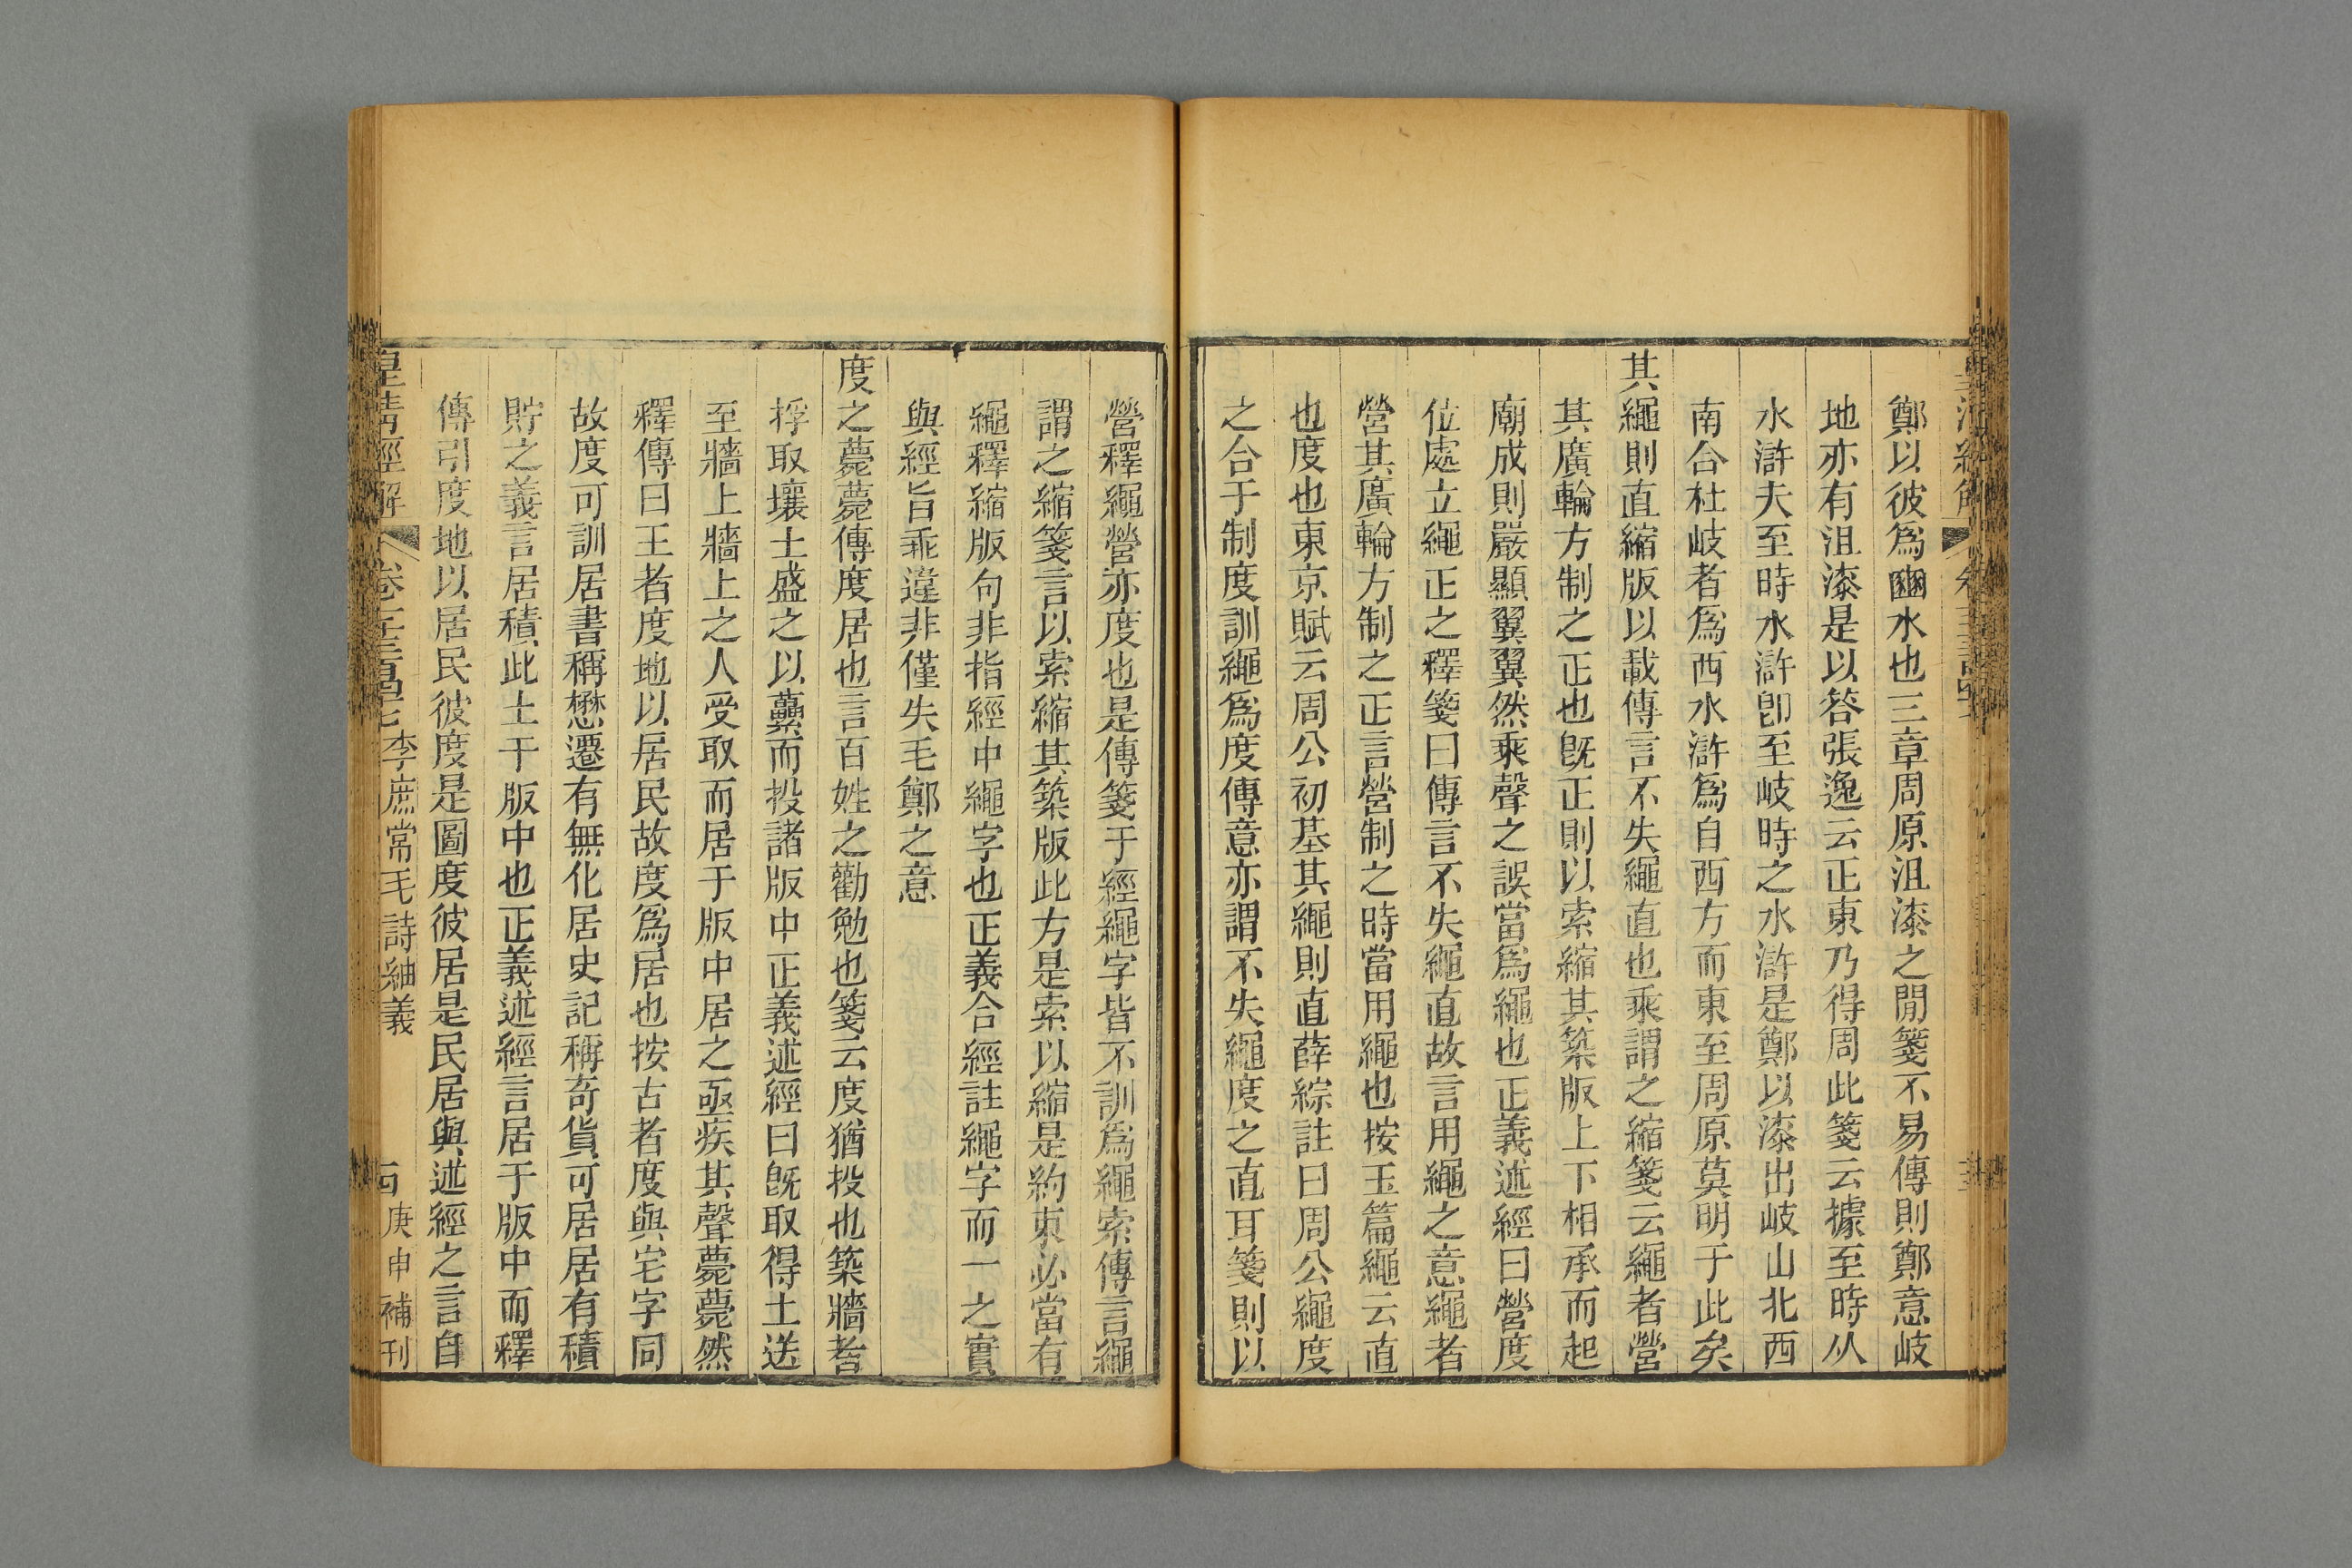 鄭以彼爲豳水也三章周原沮漆之閒箋不易傳則鄭意岐
地亦有沮漆是以答張逸云正東乃得周此箋云據至時从
水滸夫至時水滸卽至岐時之水滸是鄭以漆出岐山北西
南合杜岐者爲西水滸爲自西方而東至周原莫明于此矣
其繩則直縮版以載傳言不失繩直也乘謂之縮箋云繩者營
其廣輪方制之正也旣正則以索縮其築版上下相承而起
廟成則嚴顯翼翼然乘聲之誤當爲繩也正義述經曰營度
位處立繩正之釋箋曰傳言不失繩直故言用繩之意繩者
營其廣輪方制之正言營制之時當用繩也按玉篇繩云直
也度也東京賦云周公初基其繩則直薛綜註曰周公繩度
之合于制度訓繩爲度傳意亦謂不失繩度之直耳箋則以
營釋繩營亦度也是傳箋于經繩字皆不訓爲繩索傳言繩
謂之縮箋言以索縮其築版此方是索以縮是約束必當有
繩釋縮版句非指經中繩字也正義合經註繩字而一之實
與經旨乖違非僅失毛鄭之意
度之薨薨傳度居也言百姓之勸勉也箋云度猶投也築牆者
捊取壤土盛之以虆而投諸版中正義述經曰旣取得土送
至牆上牆上之人受取而居于版中居之亟疾其聲薨薨然
釋傳曰王者度地以居民故度爲居也按古者度與宅字同
故度可訓居書稱懋遷有無化居史記稱奇貨可居居有積
貯之義言居積此土于版中也正義述經言居于版中而釋
傳引度地以居民彼度是圖度彼居是民居與述經之言自
皇清經解 李庶常毛詩紬義 庚申補刊